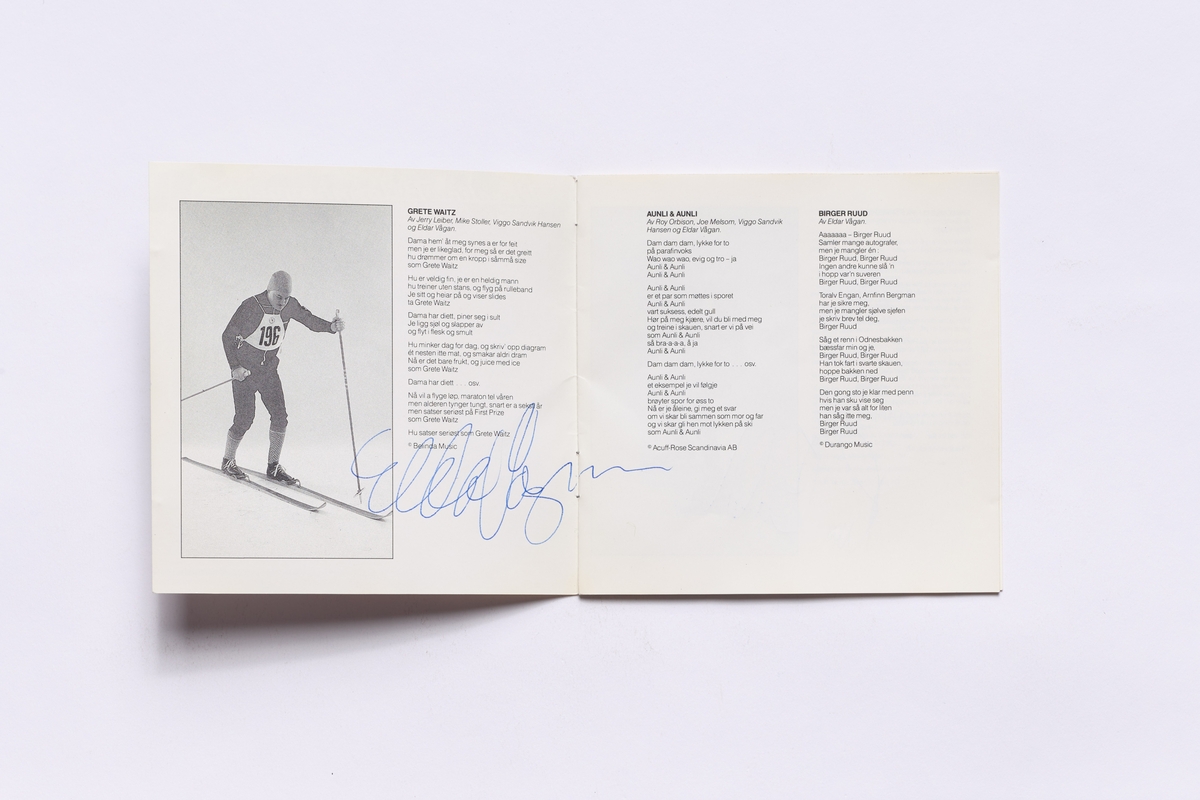 196
GRETE WAITZ
Av Jerry Leiber, Mike Stoller, Viggo Sandvik Hansen
og Eldar Vågan.
Dama hem' åt meg synes a er for feit
men je er likeglad, for meg så er det greit
hu drømmer om en kropp i såmmå size
som Grete Waitz
Hu er veldig fin, je er en heldig mann
hu treiner uten stans, og flyg på rulleband
Je sitt og heiar på og viser slides
ta Grete Waitz
Dama har diett, piner seg i sult
Je ligg sjøl og slapper av
og flyt i flesk og smult
Hu minker dag for dag, og skriv' opp diagram
et nesten itte mat, og smakar aldri dram
Nå er det bare frukt, og juice med ice
som Grete Waitz
Dama har diett . . . osv.
Nå vil a flyge løp, maraton tel våren
men alderen tynger tungt, snart er a seksti år
men satser seriøst på First Prize
som Grete Waitz
Hu satser seriøst som Grete Waitz
© Belinda Music
Eldar Vågan
AUNLI & AUNLI
Av Roy Orbison, Joe Melsom, Viggo Sandvik
Hansen og Eldar Vågan.
Dam dam dam, lykke for to
på parafinvoks
Wao wao wao, evig og tro – ja
Aunli & Aunli
Aunli & Aunli
Aunli & Aunli
er et par som møttes i sporet
Aunli & Aunli
vart suksess, edelt gull
Hør på meg kjære, vil du bli med meg
og treine i skauen, snart er vi på vei
som Aunli & Aunli
så bra-a-a-a, å ja
Aunli & Aunli
Dam dam dam, lykke for to . . . osv.
Aunli & Aunli
et eksempel je vil følgje
Aunli & Aunli
brøyter spor for øss to
Nå er je åleine, gi meg et svar
om vi skar bli sammen som mor og far
og vi skar gli hen mot lykken på ski
som Aunli & Aunli
© Acuff-Rose Scandinavia AB
BIRGER RUUD
Av Eldar Vågan.
Aaaaaaa – Birger Ruud
Samler mange autografer,
men je mangler én :
Birger Ruud, Birger Ruud
Ingen andre kunne slå 'n
i hopp var'n suveren
Birger Ruud, Birger Ruud
Toralv Engan, Arnfinn Bergman
har je sikre meg,
men je mangler sjølve sjefen
je skriv brev tel deg,
Birger Ruud
Såg et renn i Odnesbakken
bæssfar min og je,
Birger Ruud, Birger Ruud
Han tok fart i svarte skauen,
hoppe bakken ned
Birger Ruud, Birger Ruud
Den gong sto je klar med penn
hvis han sku vise seg
men je var så alt for liten
han såg itte meg,
Birger Ruud
Birger Ruud
© Durango Music